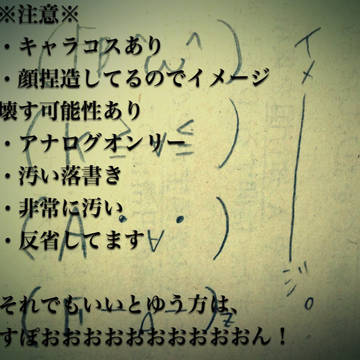 ※注意※
・キャラコスあり
・顔捏造してるのでイメージ
壊す可能性あり
・アナログオンリー
・汚い落書き
・非常に汚い
・反省してます
それでもいいとゆう方は、
すぽおおおおおおおおおおおん！
イメージ。